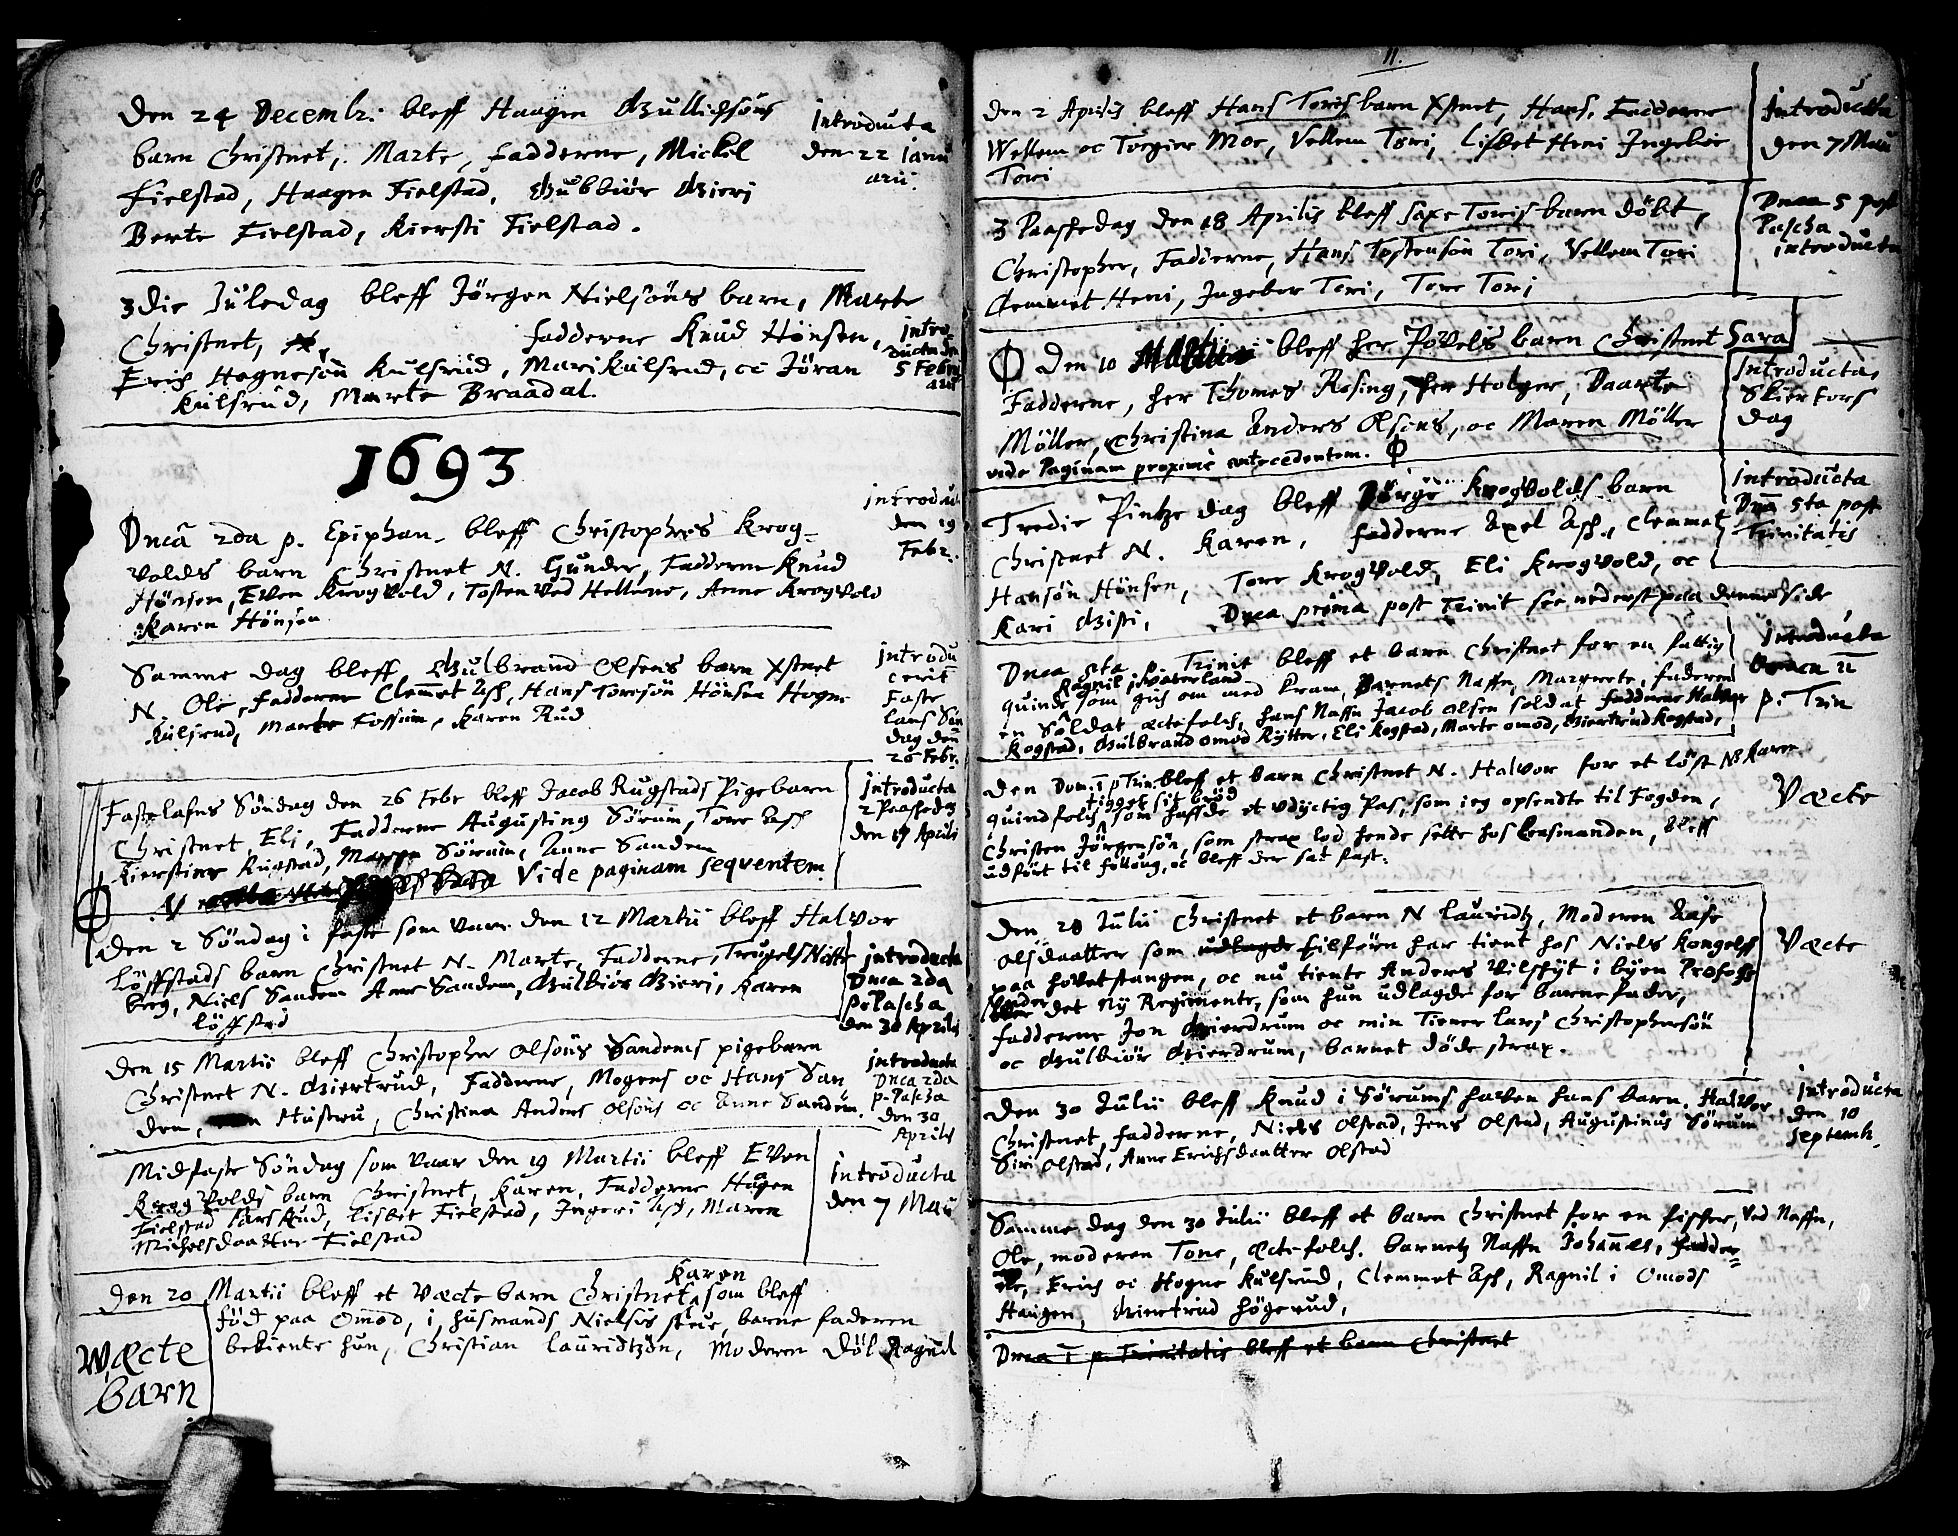 Den 24 Decemb: bleff Haagen Gullichsöns
barn Christnet, Marte, Fadderne, Mickel
Fielstad, Haagen Fielstad, Gubbiör Gieri
Berte Fielstad, Kiersti Fielstad.
Introducta
den 22 Janu
arii.
3die Juledag bleff Jörgen Nielsöns barn, Marte
Christnet, Fadderne Knud Hönsen,
Erich Hognesön Kulsrud, Mari Kulsrud, oc Jöran
Kulsrud, Marte Braadal.
intro
ducta den
5 Febru
arii
1693
Dnca 2da p. Epiphan. bleff Christophers Krog-
volds barn Christnet N. Gunder, Fadderne Knud
Hönsen, Even Krogvold, Tosten ved Hellerne, Anne Krogvold
Karen Hönsen
introdu
den 19
Febr.
Samme dag bleff Gulbrand Olsens barn Xstnet
N. Ole, Fadderne Clemmet Asch, Hans Toresön Hönsen Hogne
Kulsrud, Marte Fossum, Karen Rud
introdu
cerit
Faste
lans Sön
dag den
26 Febr.
Fastelafns Söndag den 26 Febr bleff Jacob Rugstads Pigebarn
Christnet, Eli, Fadderne Augustinus Sörum, Tore Asch
Kierstine Rugstad, Maren Sörum, Anne Sandem
Vide paginam seqventem.
introducta
2 Paaschedag
den 17 Aprilis
Den 2 Söndag i Faste som vaar den 12 Martii bleff Halvor
Löffstads barn Christnet N. Marte, Fadderne, Truels Natte
berg, Niels Sandem Anne Sandem, Gulbiör Gieri, Karen
Löffstad
introducta
Dnca 2da
p. Pascha
den 30 Aprilis
Den 15 Martii bleff Christopher Olsöns Sandems pigebarn
Christnet N. Giertrud, Fadderne, Mogens oc Hans San
dem, Hustru, Christina Anders Olsöns oc Anne Sandem.
introducta
Dnca 2da
p. Pascha
den 30
Aprilis
Midfaste Söndag som vaar den 19 Martii bleff Even
Krogvolds barn Christnet, Karen, Fadderne Hagen
Fielstad Lars Rud, Lisbit Fielstad, Ingeri Asch, Maren
Michelsdaatter Fielstad
introducta
den 7 Maii
Den 20 Martii bleff et Væcte barn Christnet Karen som bleff
föd paa Omod, i husmands Nielsis stue, barne faderen
bekiente hun, Christian Lauridtzön, Moderen Döl Ragnil
Wæcte
barn
11.
Den 2 Aprilis bleff Hans Toris barn Xstnet, Hans, Fadderne
Wellem oc Torgier Moe, Vellem Tori, Lisbet Heni Ingebor
Tori
Introducta
den 7 Maii
3 Paaschedag den 18 Aprilis bleff Saxe Toris barn döbt,
Christopher, Fadderne, Hans Tostensön Tori, Vellem Tori
Clemmet Heni, Ingebor Tori, Tore Tori
Dnca 5 post
Pascha
introducta
Den 10 Martii bleff her Povels barn Christnet Sara
Fadderne, her Thomes Rosing, her Holger, Daarte
Möller, Christina Anders Olsöns, oc Maren Möller
vide Paginam proximè antecedentem.
Introducta,
Skiertors
dag
Tredie Pintze dag bleff Börge Krogvolds barn
Christnet N. Karen, Fadderne Axel Asch, Clemmet
Hansön Hönsen, Tore Krogvold, Eli Krogvold, oc
Kari Gisti, Dnca prima post Trinit see nederst paa denne side
introducta
Dnca 5ta post
Trinitatis
Dnca 5ta p. Trinit bleff et barn Christnet for en fattig
quinde Ragnil i Waterland som gich om med Kram, Barnets Naffn, Margrete, faderen
en Soldat ectefolch, hans Naffn Jacob Olsen soldat Fadderne Halvor
Rogstad, Gulbrand Omod Rytter, Eli Rogstad, Marte Omod, Giertrud Rogstad,
introducta
Dnca 11
p. Trin
Den Dom. 1 p Trin. bleff et barn Christnet N. Halvor for et löst N. Karen
quindfolch, tigget sit bröd som haffde et udyctig Pas, som ieg opsendte til Fogden,
Christen Jörgensön, som strax lod hende sette hos Lensmanden, bleff
udfört til Follaug, oc bleff der sat fast.
Væcte
Den 28 Julii Christnet et barn N Lauridtz, Moderen Aase
Olsdaatter som filforn har tient hos Niels Kongelff
paa Hovetstangen, oc nu tiente Anders Vilskyt i byen Profosse
under det ny Regimente, som hun udlagde for barnefader,
Fadderne Jon Gierdrum oc min Tiener Lars Christophersön
oc Gulbiör Gierdrum, barnet döde strax.
Væcte
Den 30 Julii bleff Knud i Sörums haven hans barn. Halvor
Christnet, Fadderne, Niels Olstad, Jens Olstad, Augustinus Sörum
Siri Olstad, Anne Erichsdaatter Olstad
introducta
den 10
septemb.
Samme dag den 30 Julii bleff et barn Christnet for en fischer, ved Naffn,
Ole, moderen Tone, Ectefolch. barnetz Naffn Johannes, Fadder-
ne, Erich oc Hogne Kulsrud, Clemmet Asch, Ragnil i Omods
Haugen, Giertrud Högerud,
Dnca 1 p. Trinitatis bleff et barn Christnet